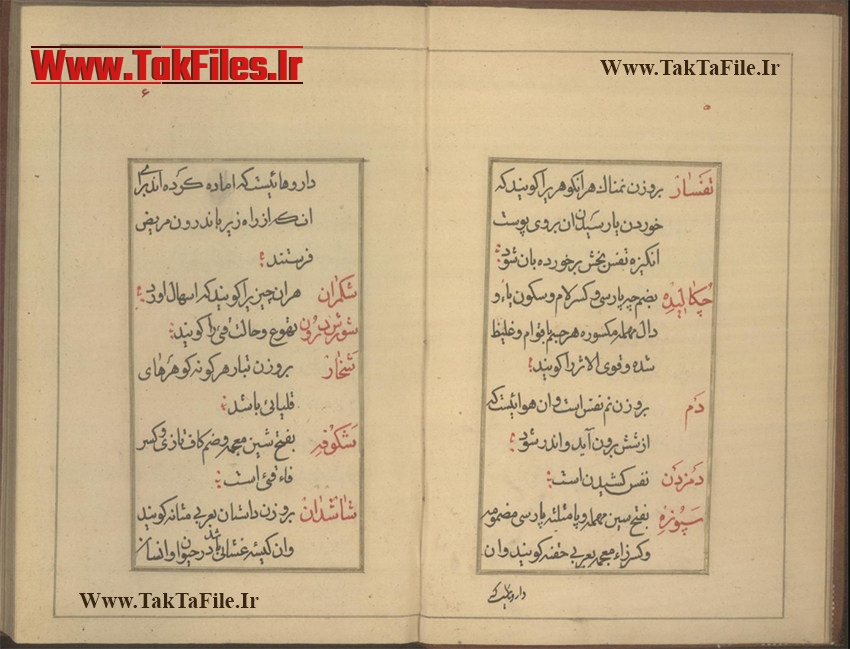 Www.TakFiles.Ir
Www.TakTaFile.Ir
۵
تفساز بروزن نمناك هر انكوهریرا كویند كه
خوردن یا رسیدن ان بروی پوست
انكیزه تفس بخش برخورده بان شود
چكالیده بضم جیم پارسی و كسر لام و سكون یاء و
دال مهمله مكسوره هر جیم با قوام و غلیظ
شده و قوی الاثر را كویند
دم بروزن نم نفس است و ان هوائیست كه
از شش برون آید و اندر شود
دم زدن نفس كشیدن است
سپوزه بفتح سین مهمله و پا مثلثه پارسی مضمومه
و كسر زاء معجمه بعربی حقنه كویند و ان
داروهائیست كه
۶
داروهائیست كه اماده كرده اند برای
انكه از راه زیر باندرون مریض
فرستند
شكمران هر ان چیزیرا كویند كه اسهال اورد
شورش درون تهوع و حالت قی را كویند
شخار بروزن تبار هر كونه كوهرهای
قلیائی باشد
شكوفه بفتح شین معجمه و ضم كاف تازی و كسر
فاء قی است
شاشدان بروزن داشان بعربی مثانه كویند
وان كیسه غشائی باشد در حیوان و انسان
Www.TakTaFile.Ir